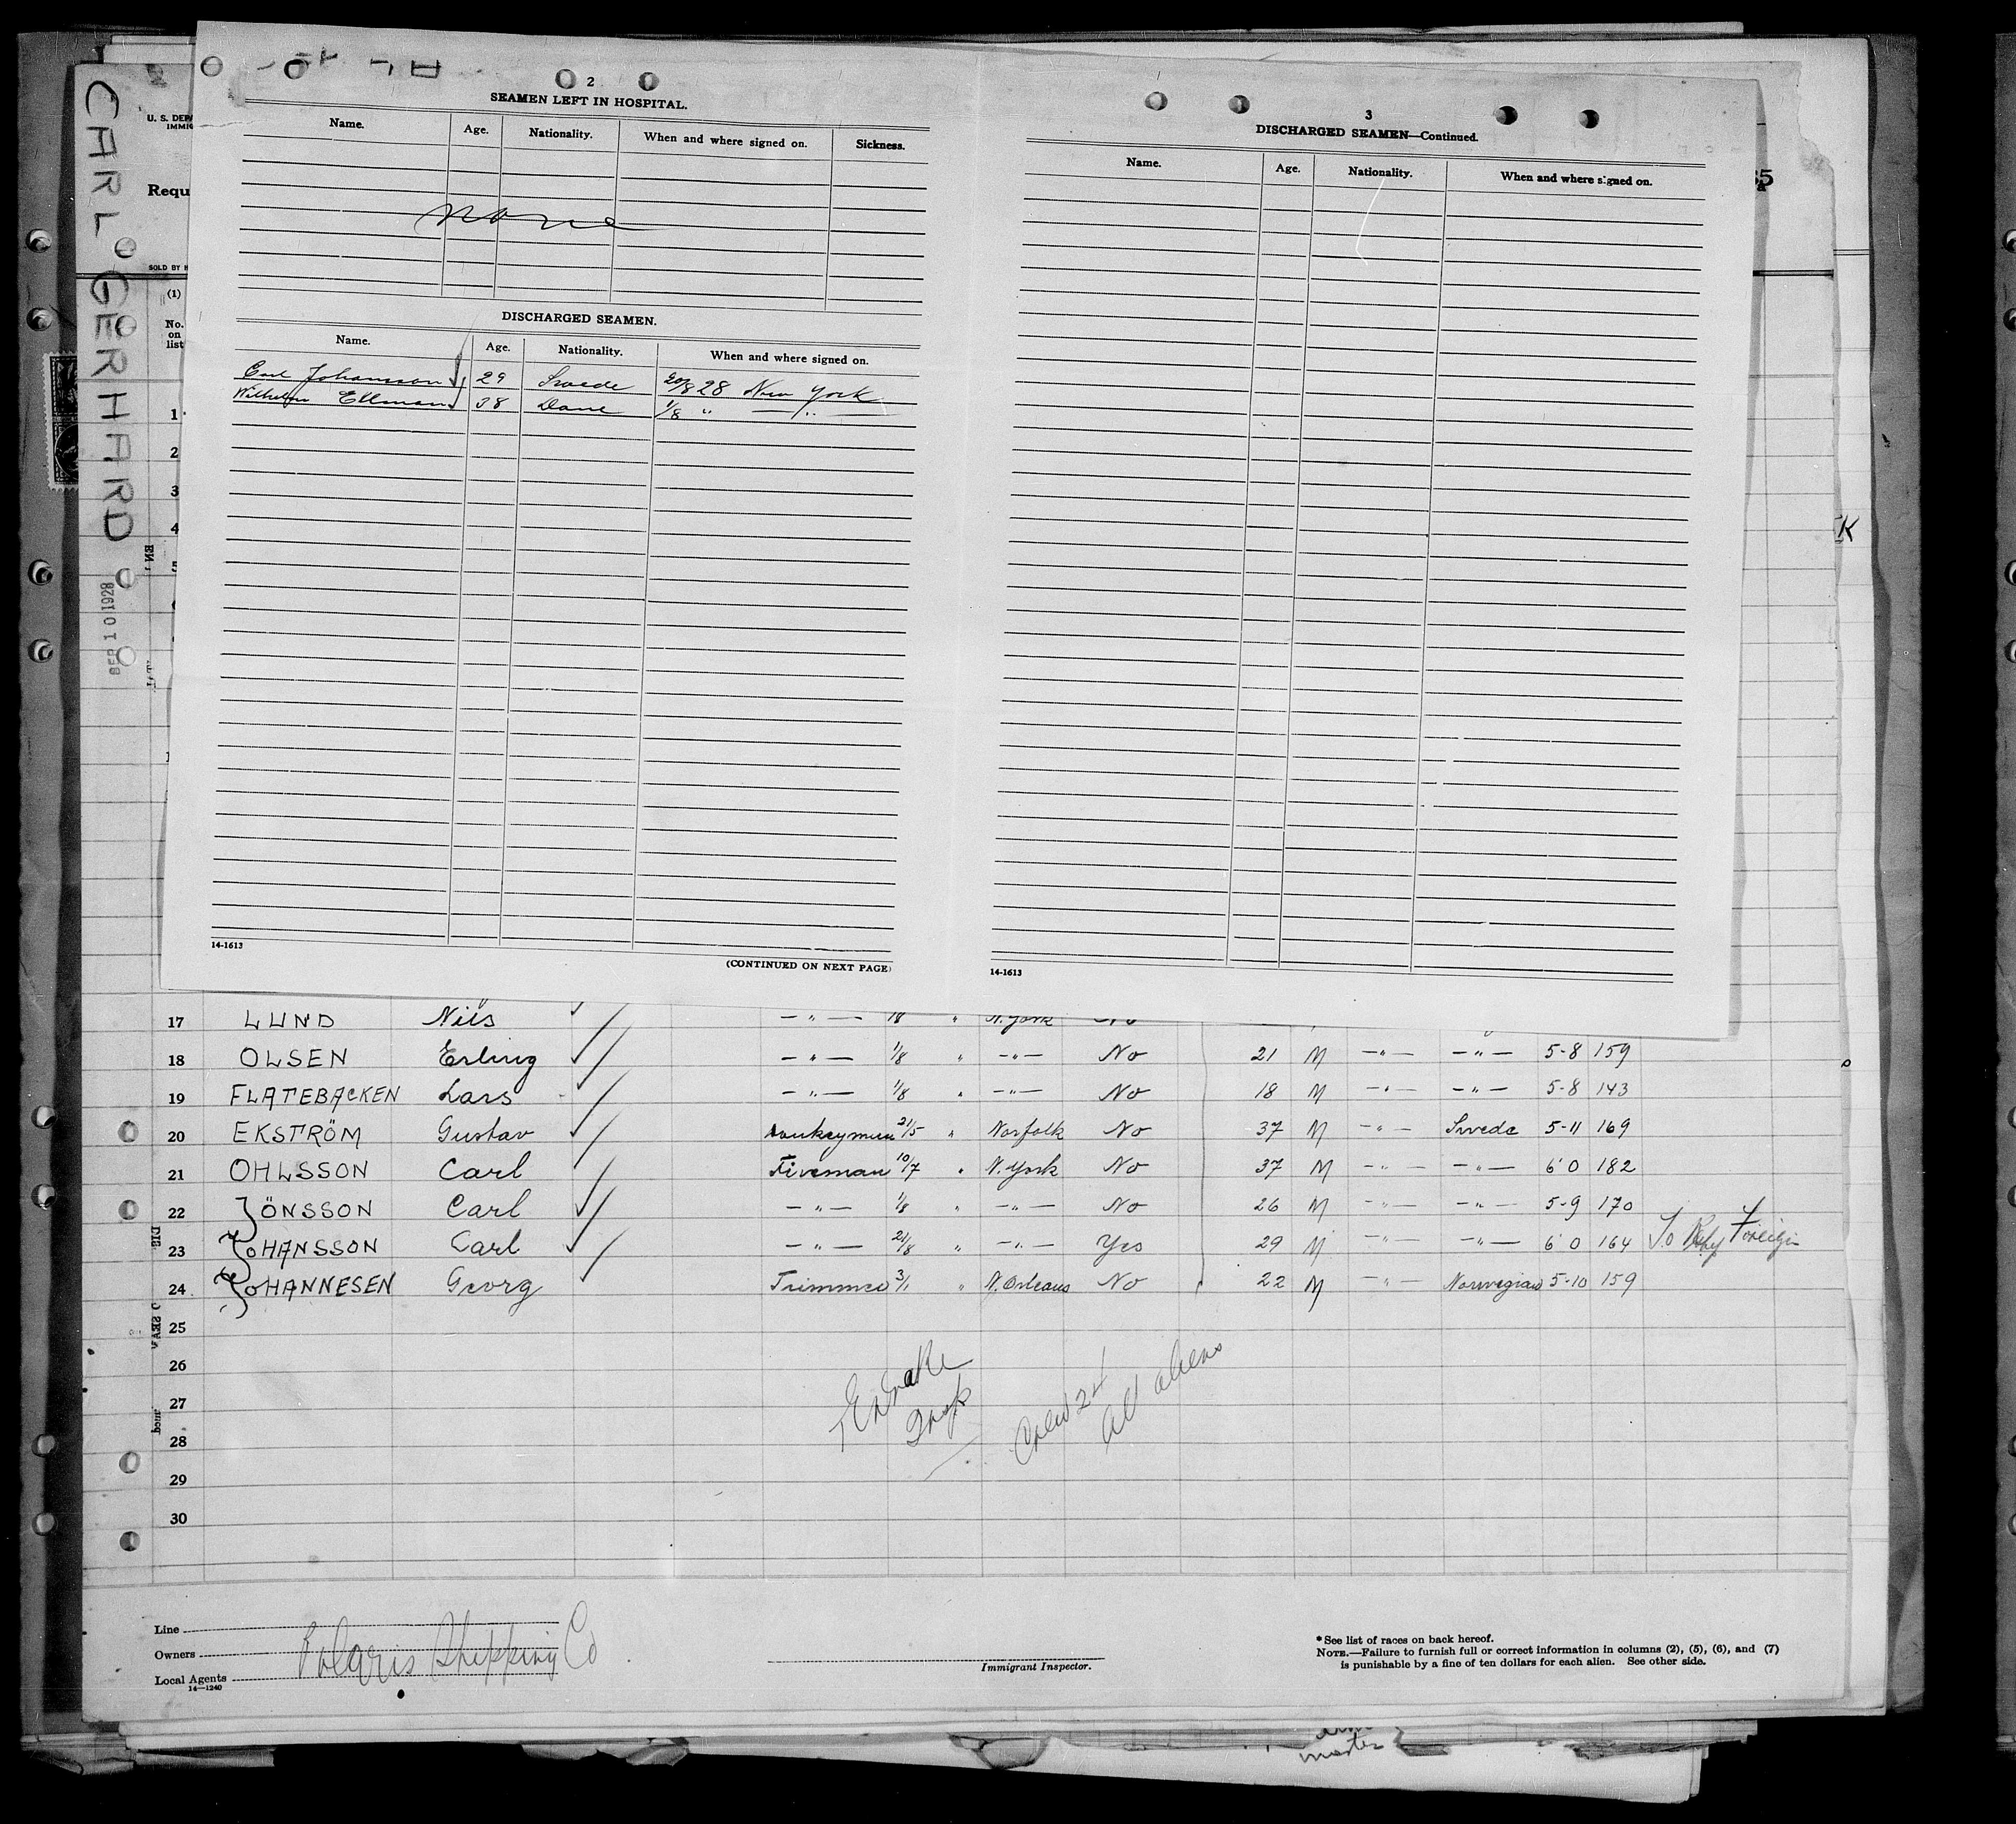 CARL GERHARD
SEP 10 1928
U. S. DEPA
IMMIG
Requ
SOLD BY
(1)
No.
on
list
1
2
3
4
2
SEAMEN LEFT IN HOSPITAL.
Name. Age. Nationality. When and where signed on. Sickness.
None
DISCHARGED SEAMEN.
Name. Age. Nationality. When and where signed on.
Carl Johansson 29 Swede 20/8 28 New York
Wilhelm Ellman 38 Dane 1/8 " — " —
14-1613
(CONTINUED ON NEXT PAGE)
3
DISCHARGED SEAMEN—Continued.
Name. Age. Nationality. When and where signed on.
14-1613
35
K
17 LUND Nils — " — 18 " N. York No
18 OLSEN Erling — " — 1/8 " — " — No 21 M — " — — " — 5-8 159
19 FLATEBACKEN Lars — " — 1/8 " — " — No 18 M — " — — " — 5-8 143
20 EKSTRÖM Gustav 21/5 " Norfolk No 37 M — " — Swede 5-11 169
21 OHLSSON Carl Fireman 10/7 " N. York No 37 M — " — — " — 6 0 182
22 JÖNSSON Carl — " — 1/8 " — " — No 26 M — " — — " — 5-9 170
23 JOHANSSON Carl — " — 21/8 " — " — Yes 29 M — " — — " — 6 0 164 To Foreign
24 JOHANNESEN Georg Trimmer 3/1 " N. Orleans No 22 M — " — Norwegian 5-10 159
25
26
27
28
29
30
Crew 24
all aliens
Line
Owners Polaris Shipping Co
Local Agents
14—1240
Immigrant Inspector.
* See list of races on back hereof.
NOTE.—Failure to furnish full or correct information in columns (2), (5), (6), and (7)
is punishable by a fine of ten dollars for each alien. See other side.
master